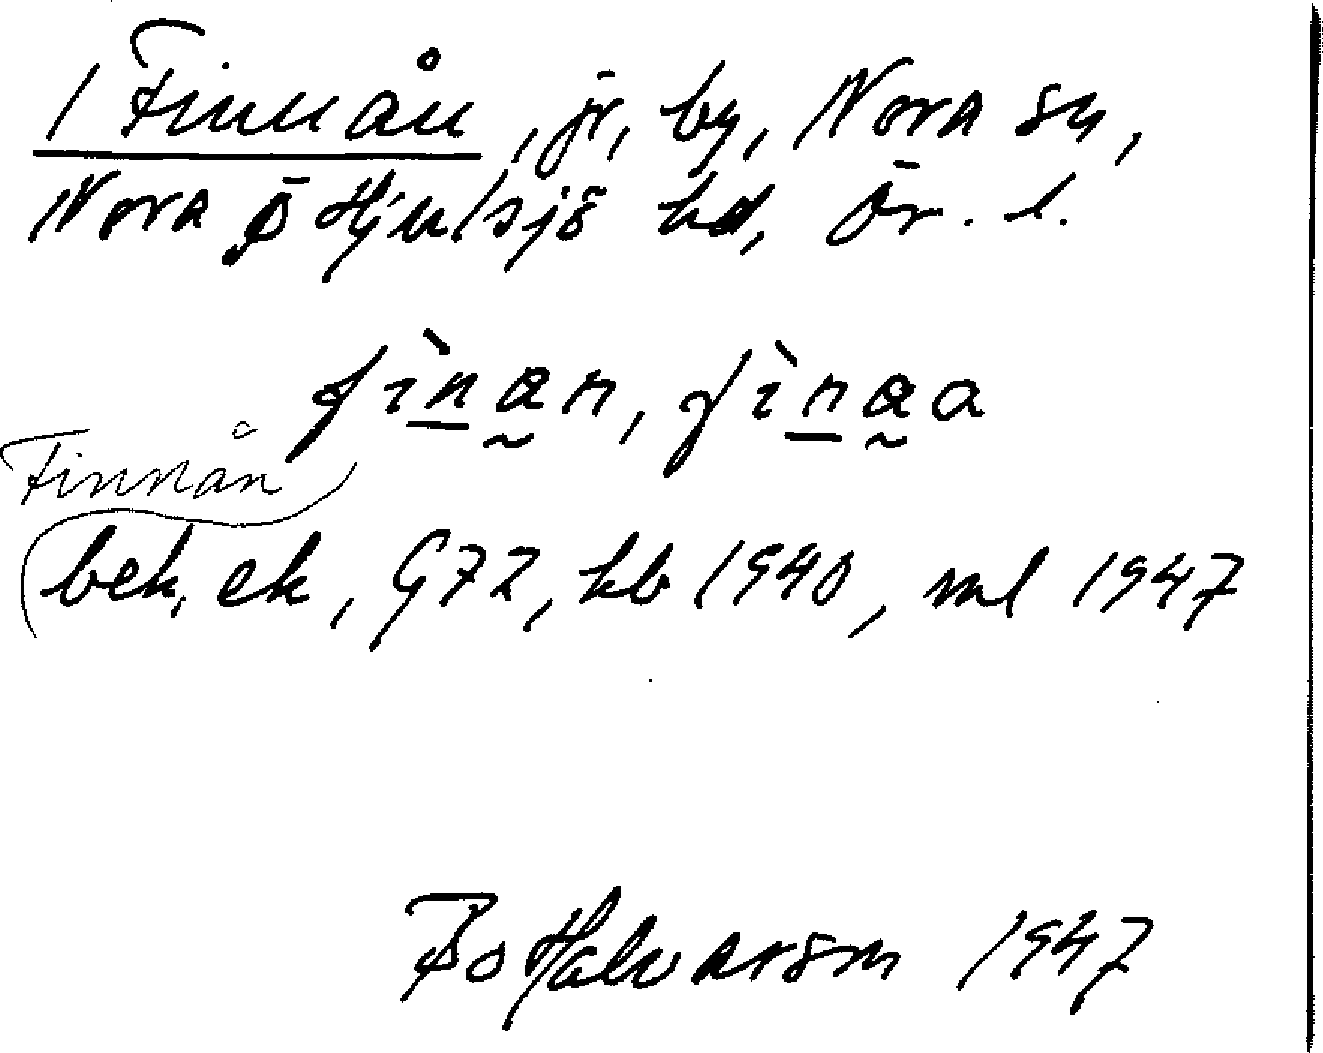 1 Finnån, jr, by, Nora sn,
Nora o Hjulsjö hd, Ör. l.
fìnan, fìnaa
Finnån
bek, ek, G72, kb 1940, ml 1947
Bo Halvarson 1947